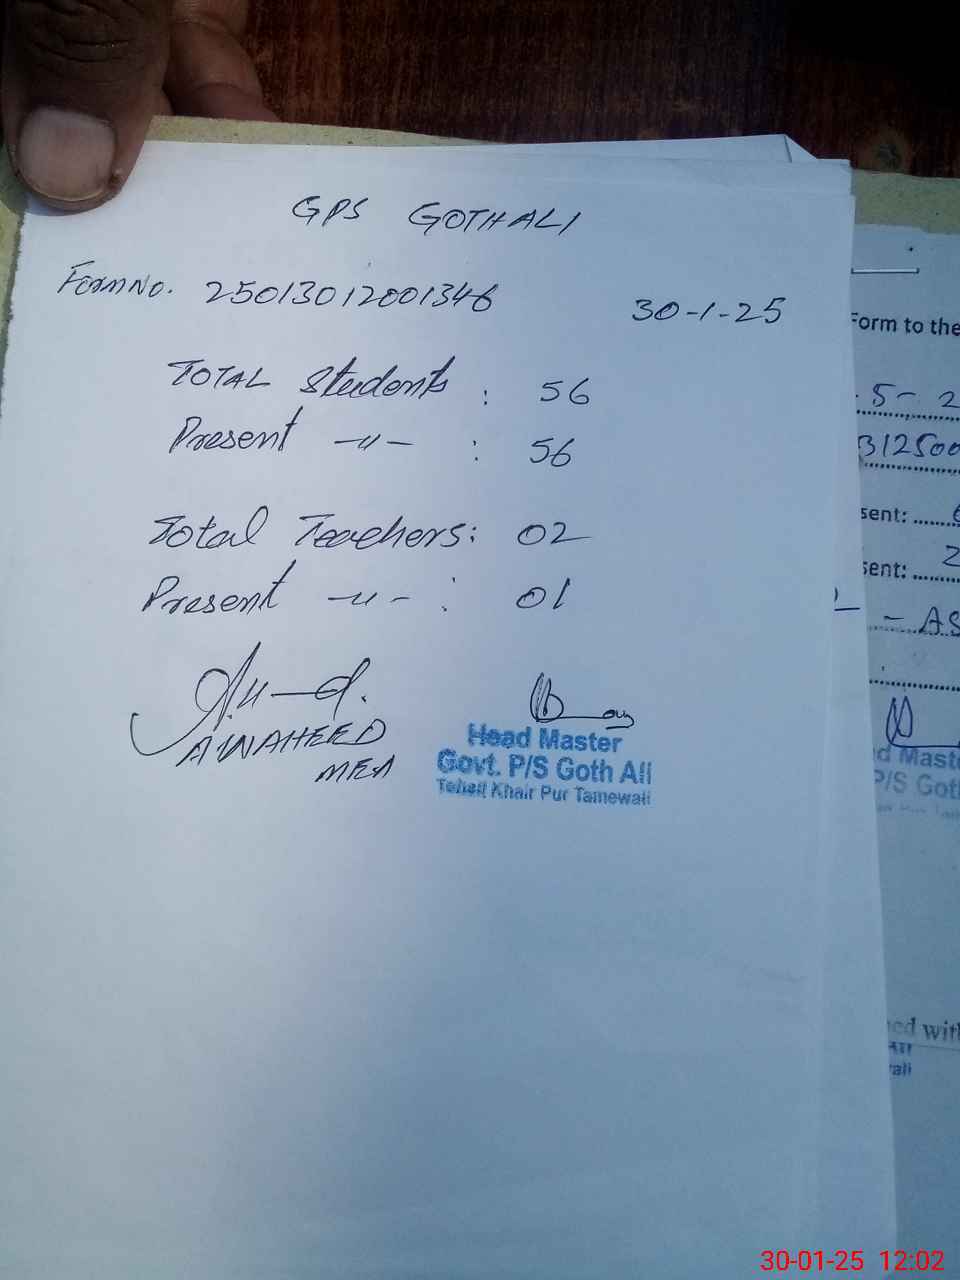 GPS GOTHALI
Form No. 25013012001346 30-1-25
TOTAL Students : 56
Present -〃- : 56
Total Teachers: 02
Present -〃- : 01
A.WAHEED
MEA
Head Master
Govt. P/S Goth Ali
Tehsil Khair Pur Tamewali
Form to the
5- 2
312500
sent:
sent:
- AS
d Maste
P/S Goth
ed with
ali
30-01-25 12:02